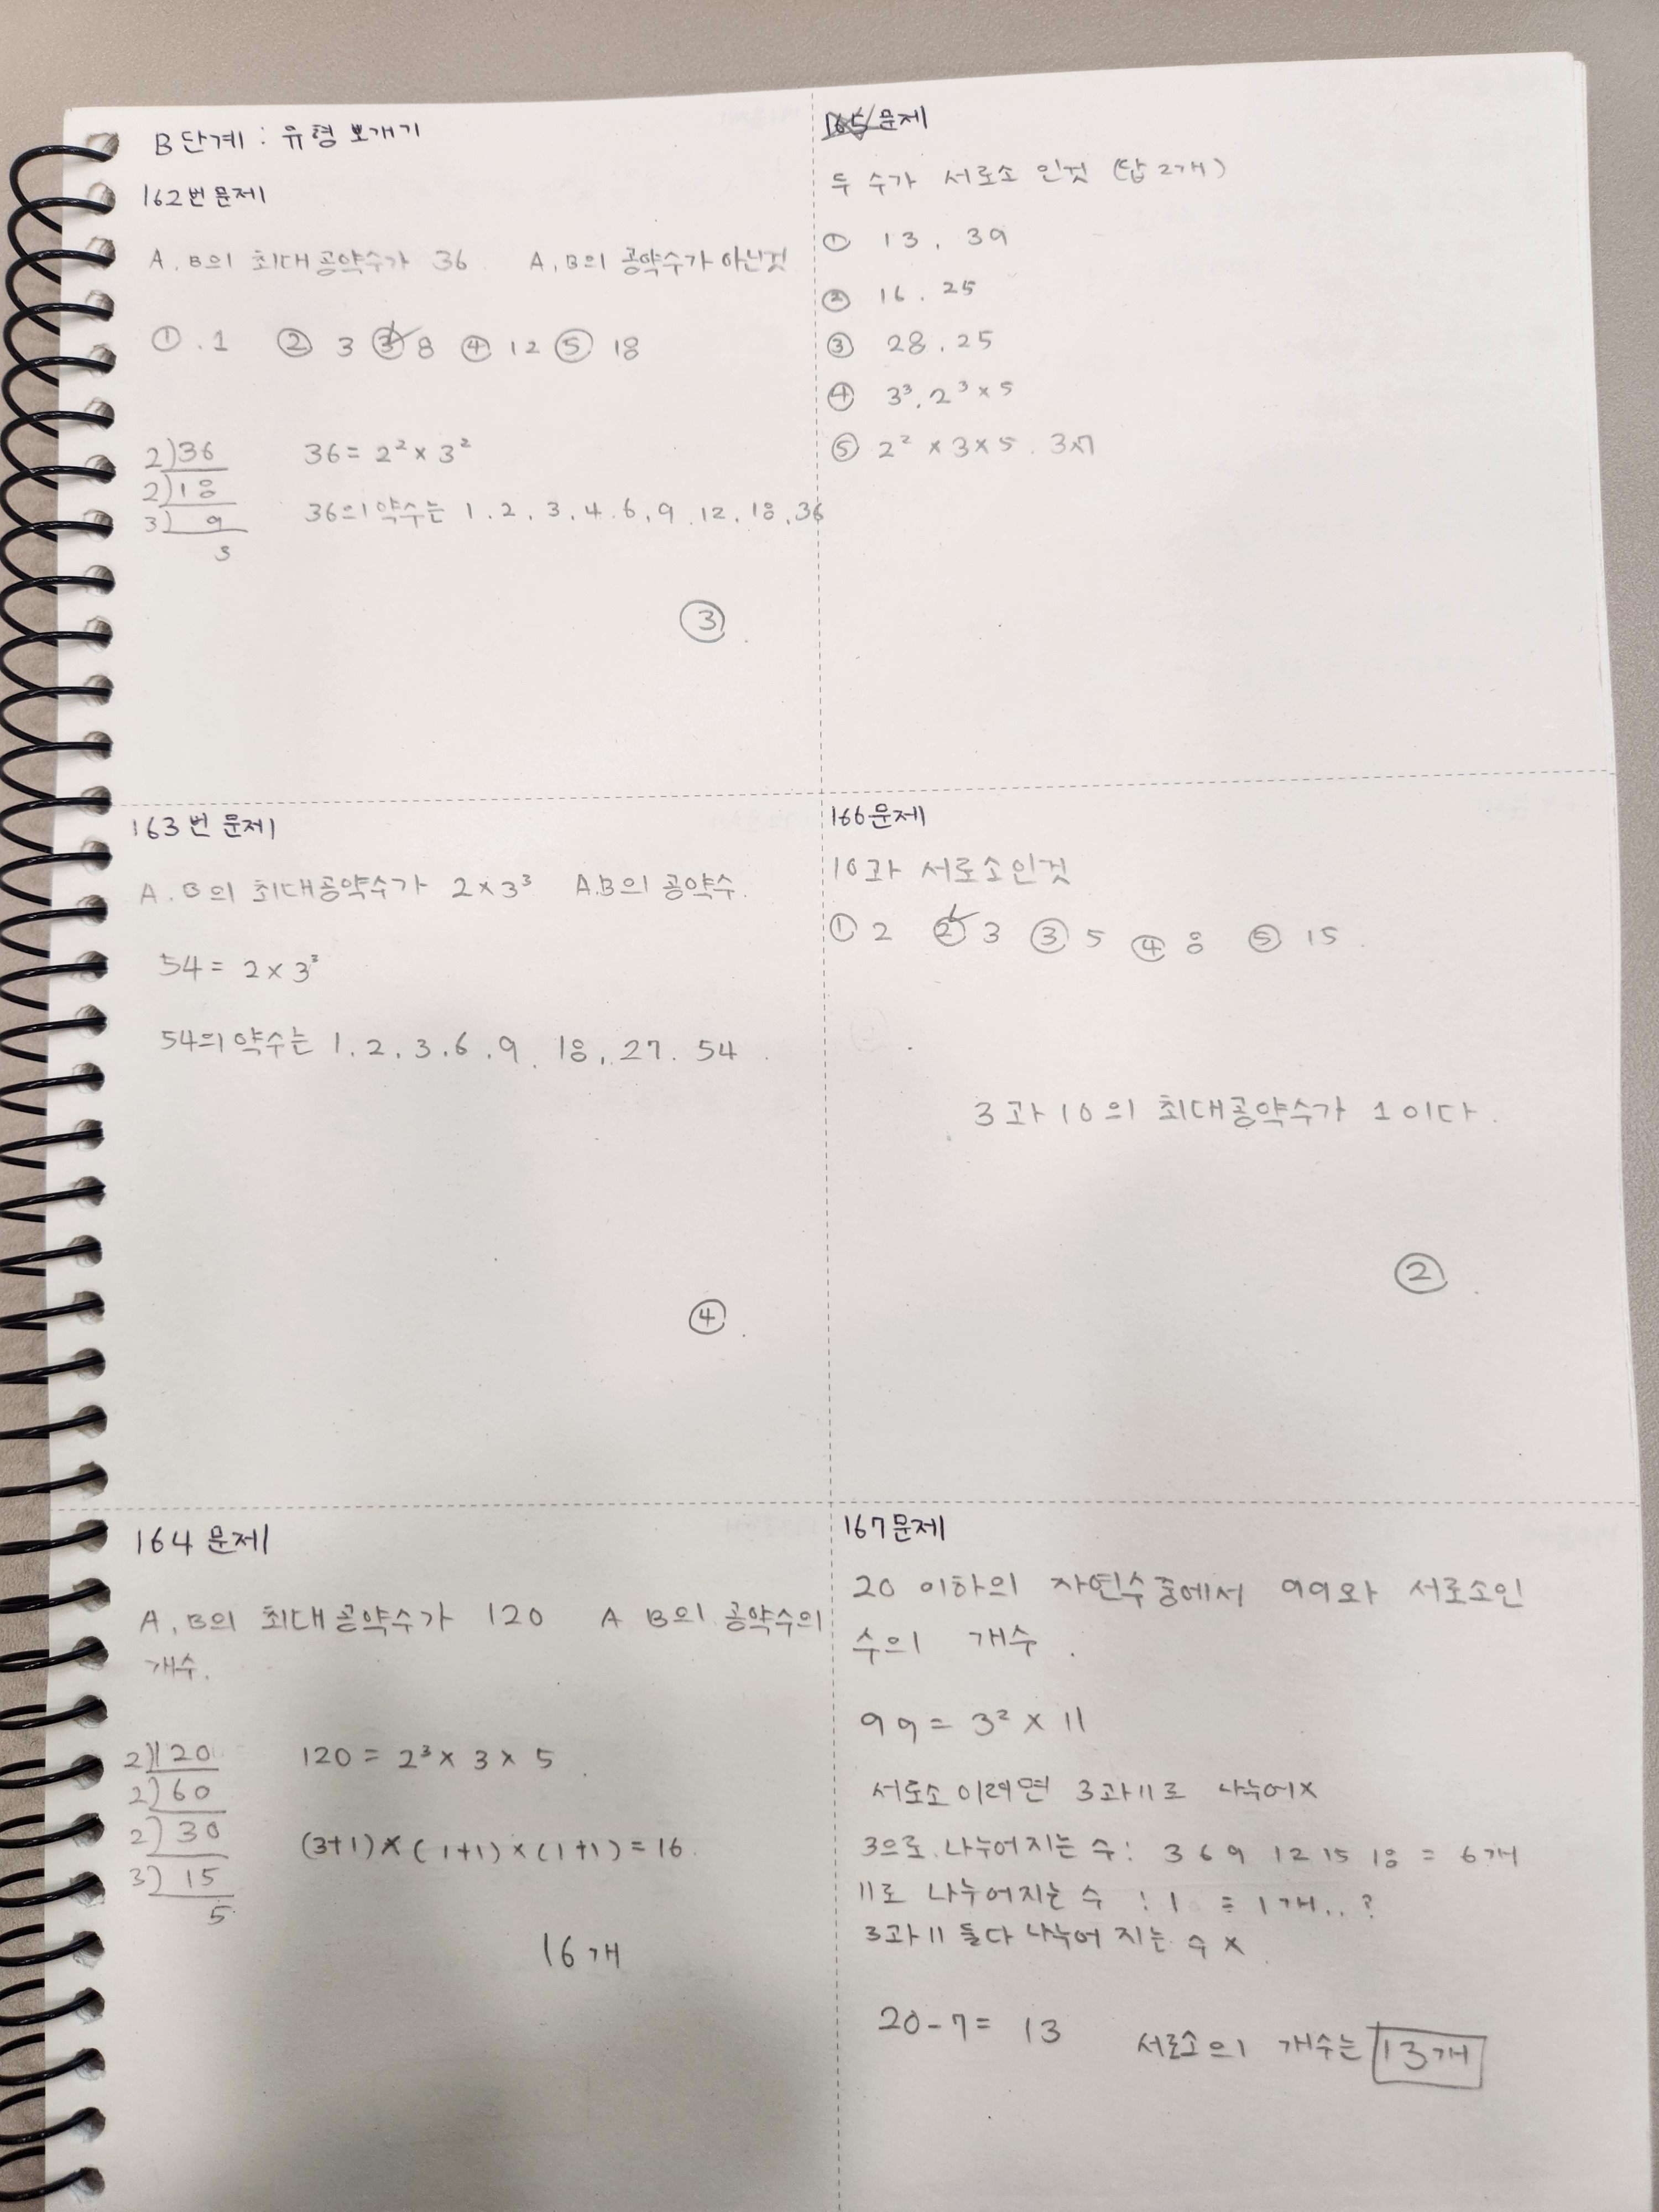 B단계 : 유형 뽀개기
162번 문제
A, B의 최대공약수가 36 A, B의 공약수가 아닌것
① . 1 ② 3 ③ 8 ④ 12 ⑤ 18
2)36 36 = 2² × 3²
2)18
3) 9 36의 약수는 1. 2. 3. 4. 6. 9. 12. 18. 36
3
③
163번 문제
A. B의 최대공약수가 2×3³ A.B의 공약수.
54 = 2×3³
54의 약수는 1. 2. 3. 6. 9. 18. 27. 54
④
164 문제
A, B의 최대공약수가 120 A B의 공약수의
개수.
2)120 120 = 2³ × 3 × 5
2)60
2)30 (3+1)×(1+1)×(1+1) = 16
3)15
5
16개
165 문제
두 수가 서로소 인것 (답 2개)
① 13, 39
② 16. 25
③ 28. 25
④ 3³. 2³×5
⑤ 2² × 3 × 5. 3×7
166문제
10과 서로소인것
① 2 ② 3 ③ 5 ④ 8 ⑤ 15
3과 10의 최대공약수가 1이다.
②
167문제
20 이하의 자연수중에서 99와 서로소인
수의 개수.
99 = 3² × 11
서로소이려면 3과 11로 나누어×
3으로 나누어지는 수 : 3 6 9 12 15 18 = 6개
11로 나누어지는 수 : 1 = 1개..?
3과 11 둘다 나누어 지는 수 ×
20-7 = 13 서로소의 개수는 13개